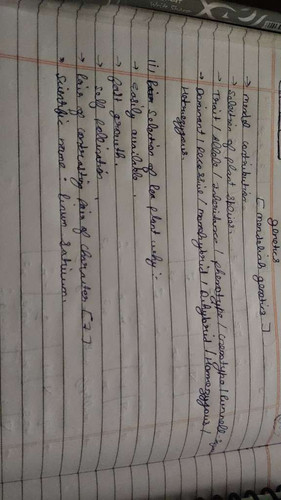 genetics
[ mendelish genetics ]
→ mendel contribution.
→ Selection of plant species.
→ Trait / Allele / inheritance / phenotype / Genotype / Punnett
→ Dominent / Recessive / monohybrid / Dihybrid / Homozygous /
Hetrozygous.
1) Selection of pea plant why :-
→ easily available.
→ fast growth.
→ self polination.
→ Pair of contrasting pair of character [ 7 ]
• Scientific name : Pisum Sativum.